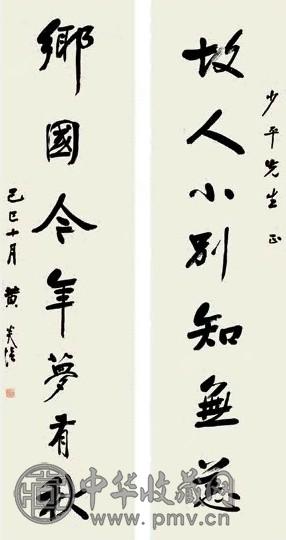 少平先生正
故人小別知無恙
鄉國今年夢有秋
己巳十月 黃炎培
中华收藏网
www.pmv.cn